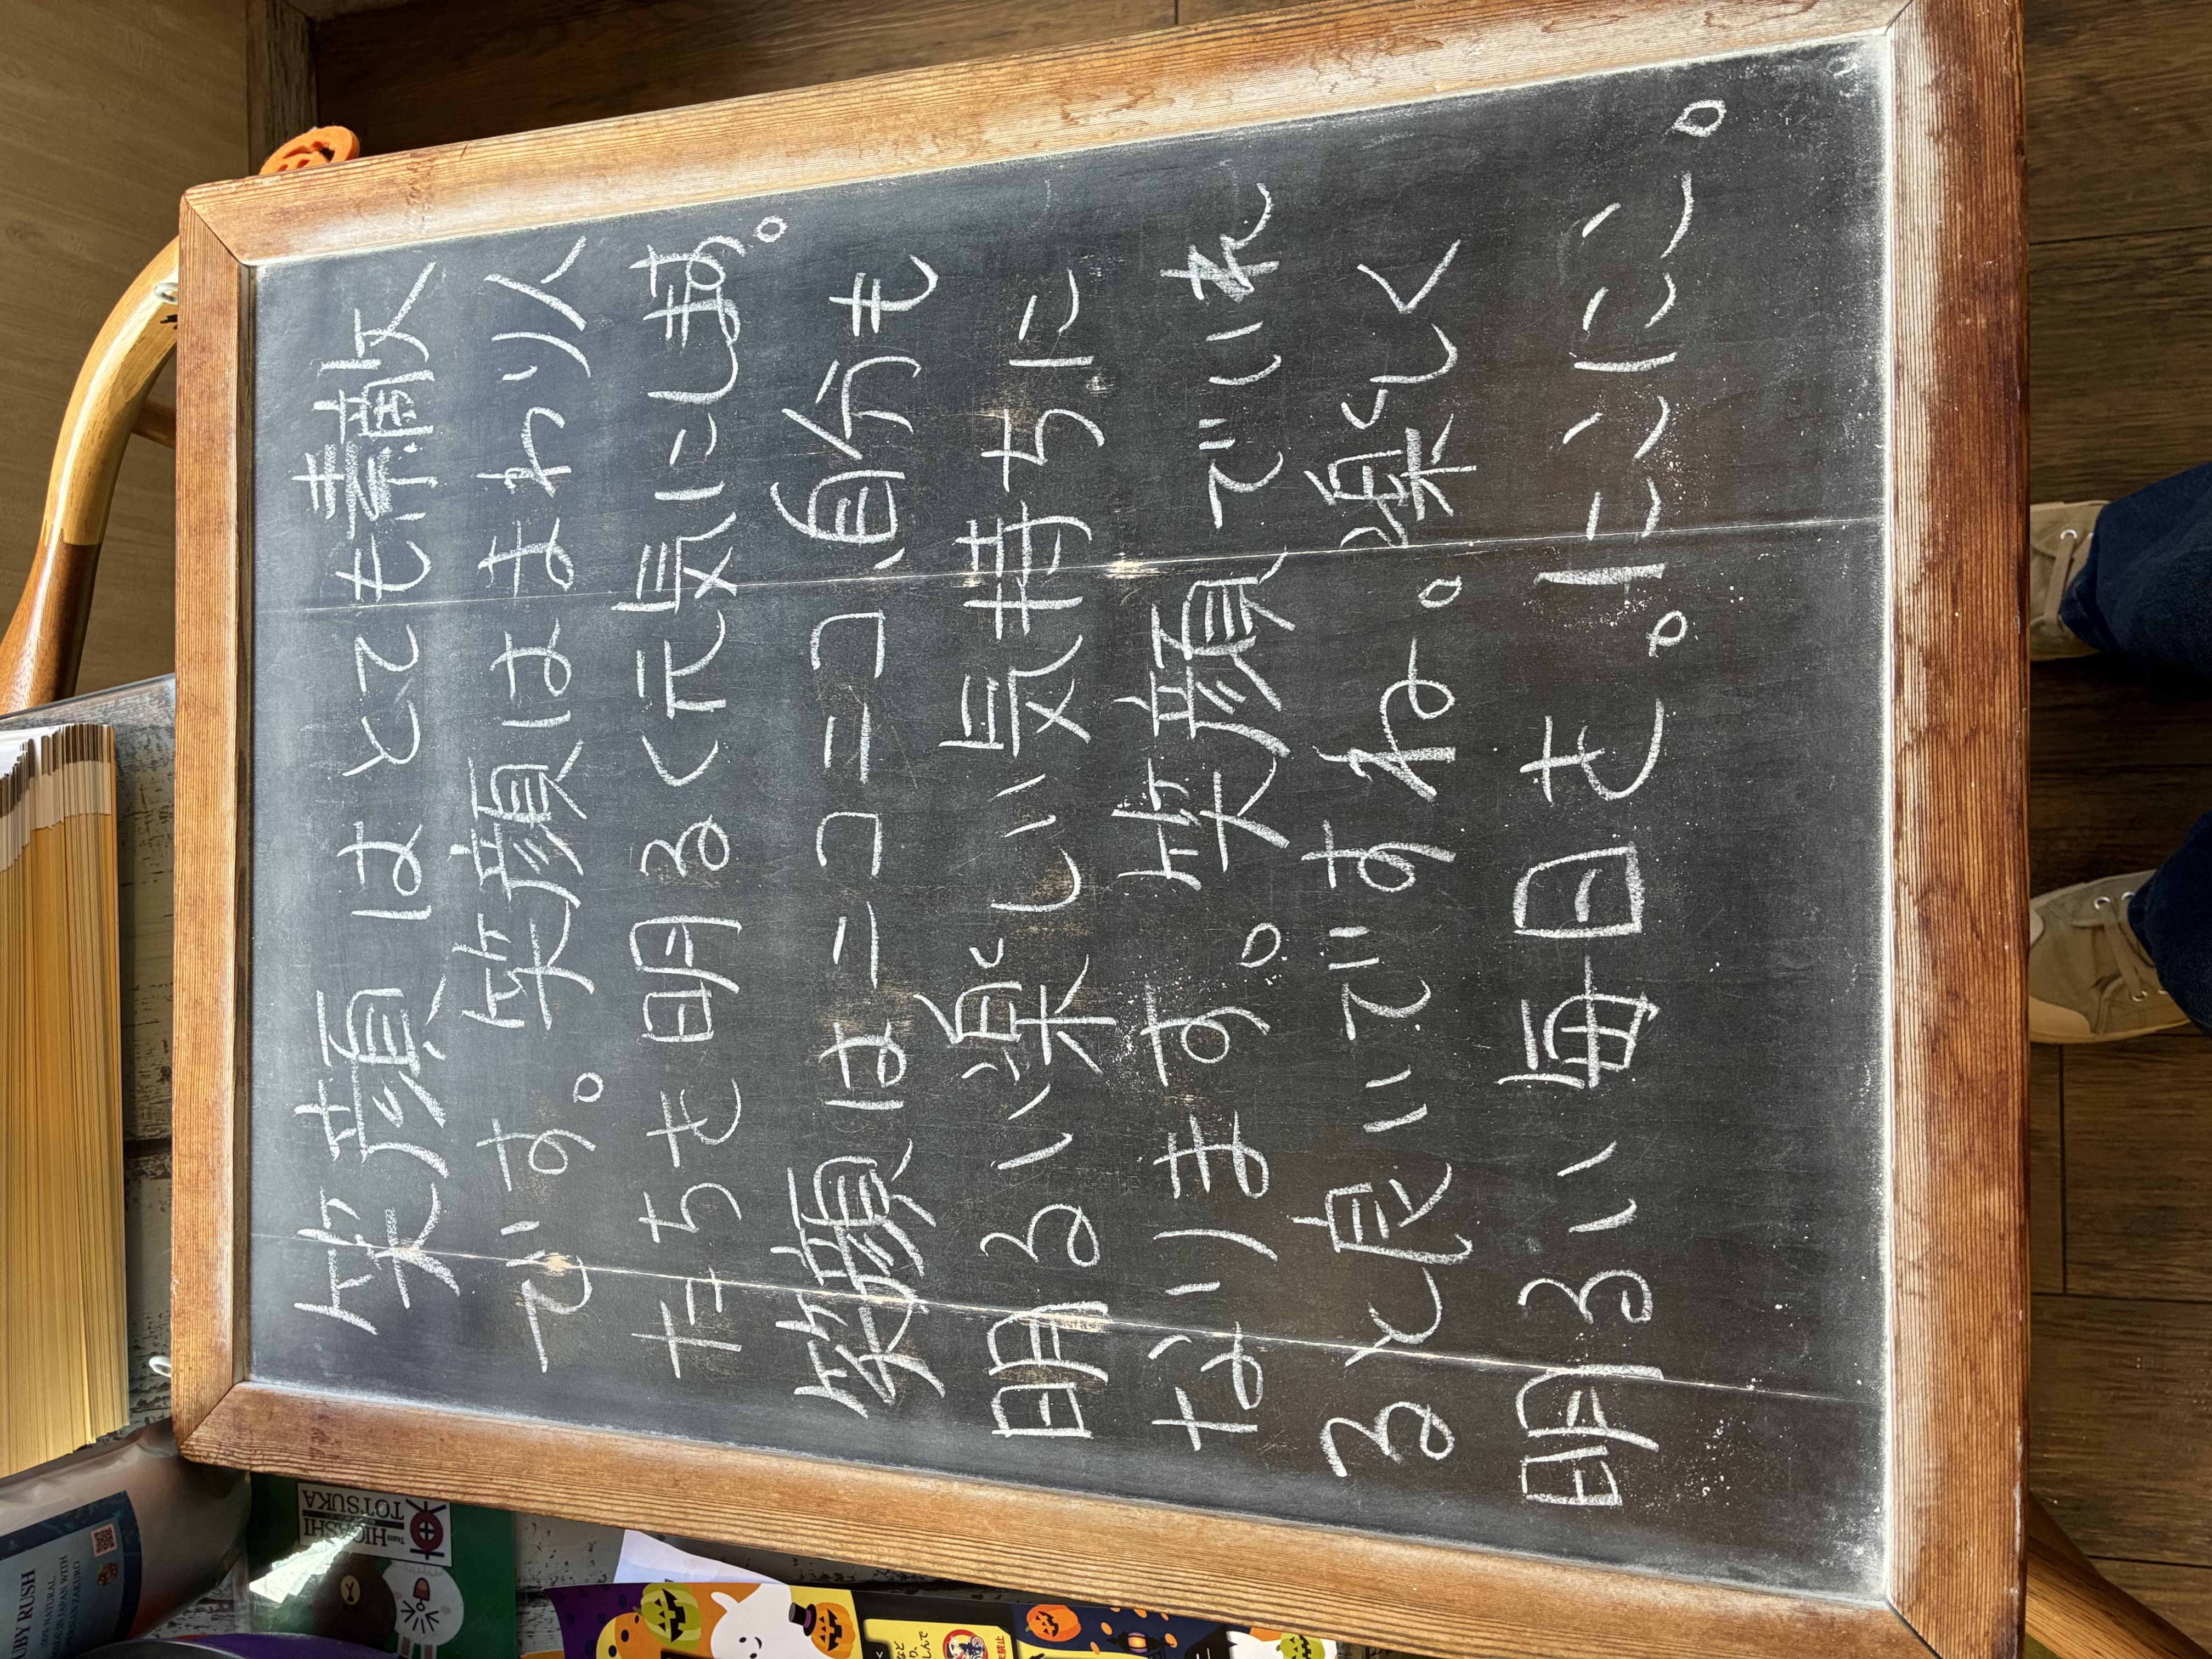 笑顔はとても素敵
です。笑顔はまわり人
たちを明るく元気にします。
笑顔はニコニコ、自分も
明るい楽しい気持ちに
なります。笑顔でいれ
ると良いですね。楽しく
明るい毎日を。にこにこ。
Team
HIGASHI
TOTSUKA
UBY RUSH
100% NATURAL